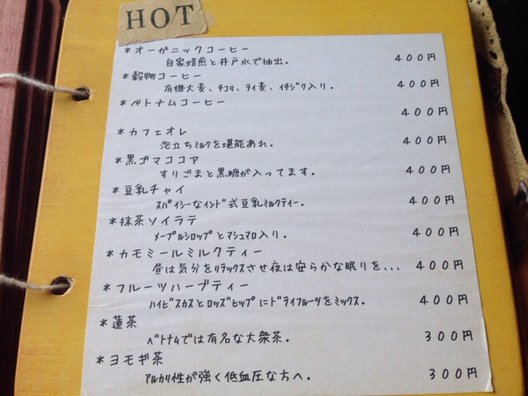 HOT
*オーガニックコーヒー
自家焙煎と井戸水で抽出. 400円
*穀物コーヒー
有機大麦、チコリ、ライ麦、イチジク入り. 400円
*ベトナムコーヒー 400円
*カフェオレ
泡立ちミルクを堪能あれ. 400円
*黒ゴマココア
すりごまと黒糖が入ってます. 400円
*豆乳チャイ
スパイシーなインド式豆乳ミルクティー. 400円
*抹茶ソイラテ
メープルシロップとマシュマロ入り. 400円
*カモミールミルクティー
昼は気分をリラックスさせ夜は安らかな眠りを... 400円
*フルーツハーブティー
ハイビスカスとローズヒップにドライフルーツをミックス. 400円
*蓮茶
ベトナムでは有名な大衆茶. 300円
*ヨモギ茶
アルカリ性が強く低血圧な方へ. 300円